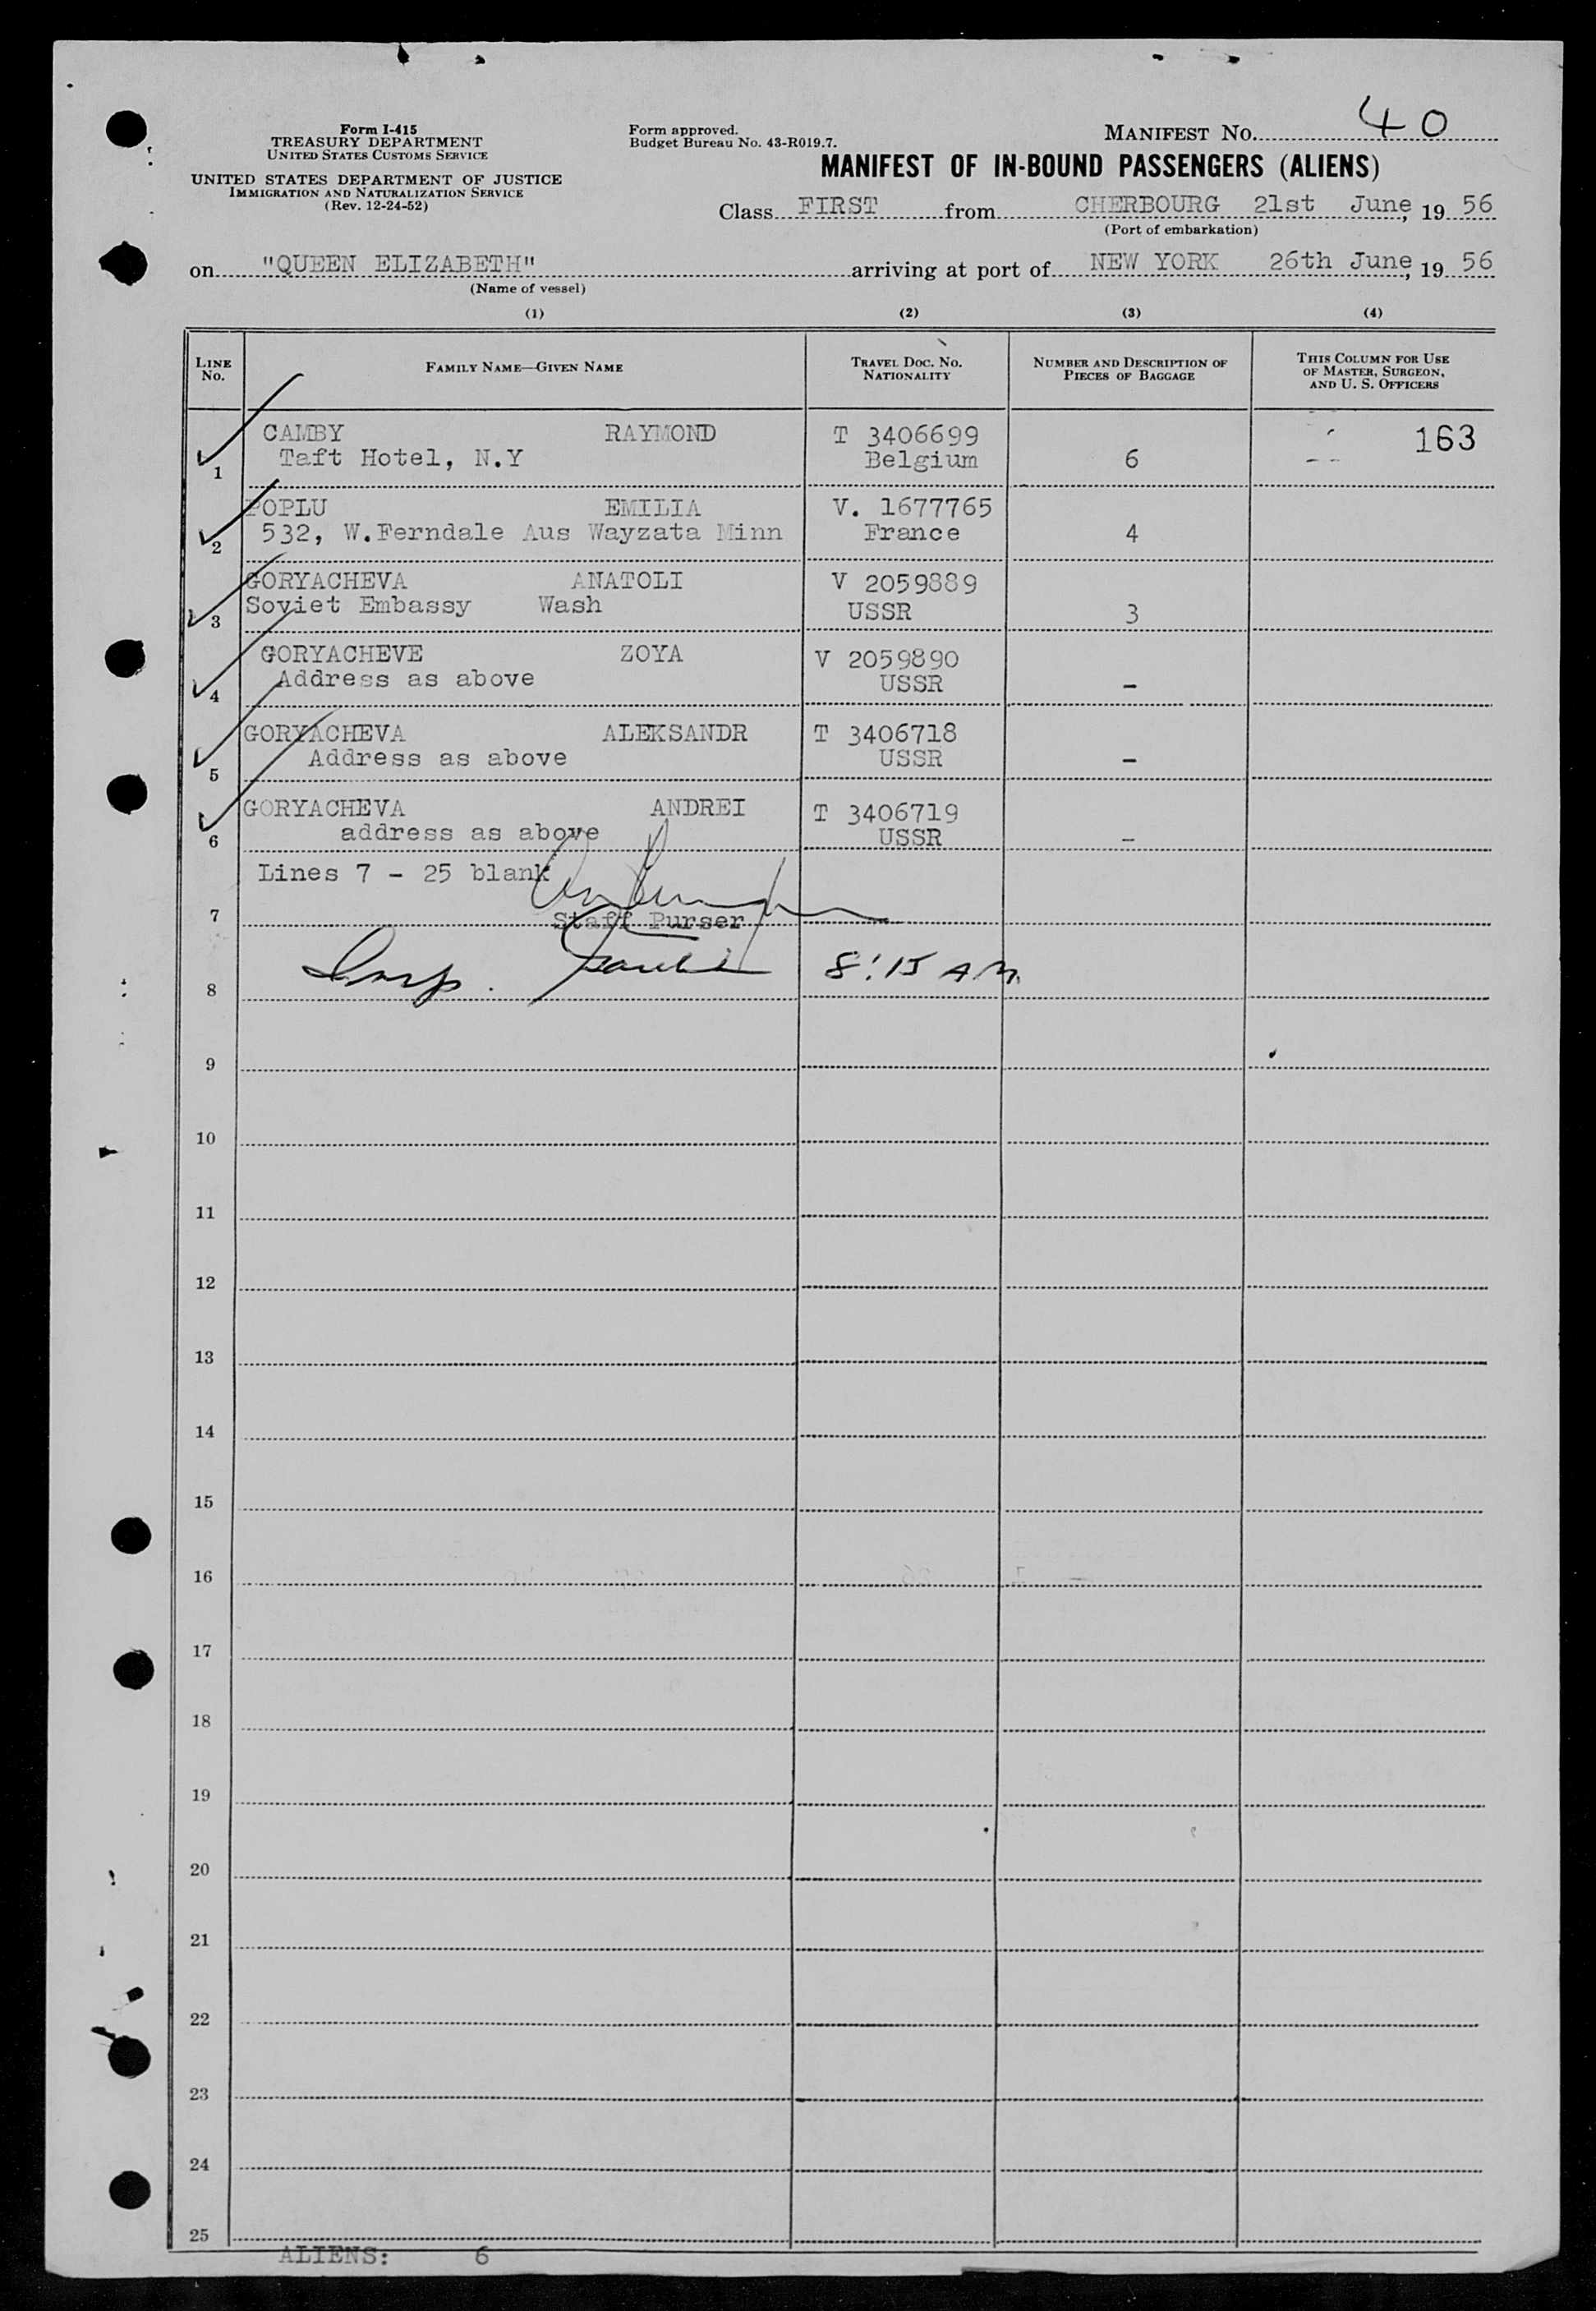 Form I-415
TREASURY DEPARTMENT
UNITED STATES CUSTOMS SERVICE
UNITED STATES DEPARTMENT OF JUSTICE
IMMIGRATION AND NATURALIZATION SERVICE
(Rev. 12-24-52)
Form approved.
Budget Bureau No. 43-R019.7.
MANIFEST NO. 40
MANIFEST OF IN-BOUND PASSENGERS (ALIENS)
Class FIRST from CHERBOURG 21st June, 19 56
(Port of embarkation)
on "QUEEN ELIZABETH" arriving at port of NEW YORK 26th June, 19 56
(Name of vessel)
(1) (2) (3) (4)
LINE No. FAMILY NAME—GIVEN NAME TRAVEL DOC. NO. NATIONALITY NUMBER AND DESCRIPTION OF PIECES OF BAGGAGE THIS COLUMN FOR USE OF MASTER, SURGEON, AND U. S. OFFICERS
CAMBY RAYMOND T 3406699 163
1 Taft Hotel, N.Y Belgium 6
POPLU EMILIA V. 1677765
2 532, W.Ferndale Aus Wayzata Minn France 4
GORYACHEVA ANATOLI V 2059889
3 Soviet Embassy Wash USSR 3
GORYACHEVE ZOYA V 2059890
4 Address as above USSR –
GORYACHEVA ALEKSANDR T 3406718
5 Address as above USSR –
GORYACHEVA ANDREI T 3406719
6 address as above USSR –
Lines 7 - 25 blank
7 Staff Purser
8 Insp. 8:15 AM
9
10
11
12
13
14
15
16
17
18
19
20
21
22
23
24
25
ALIENS: 6